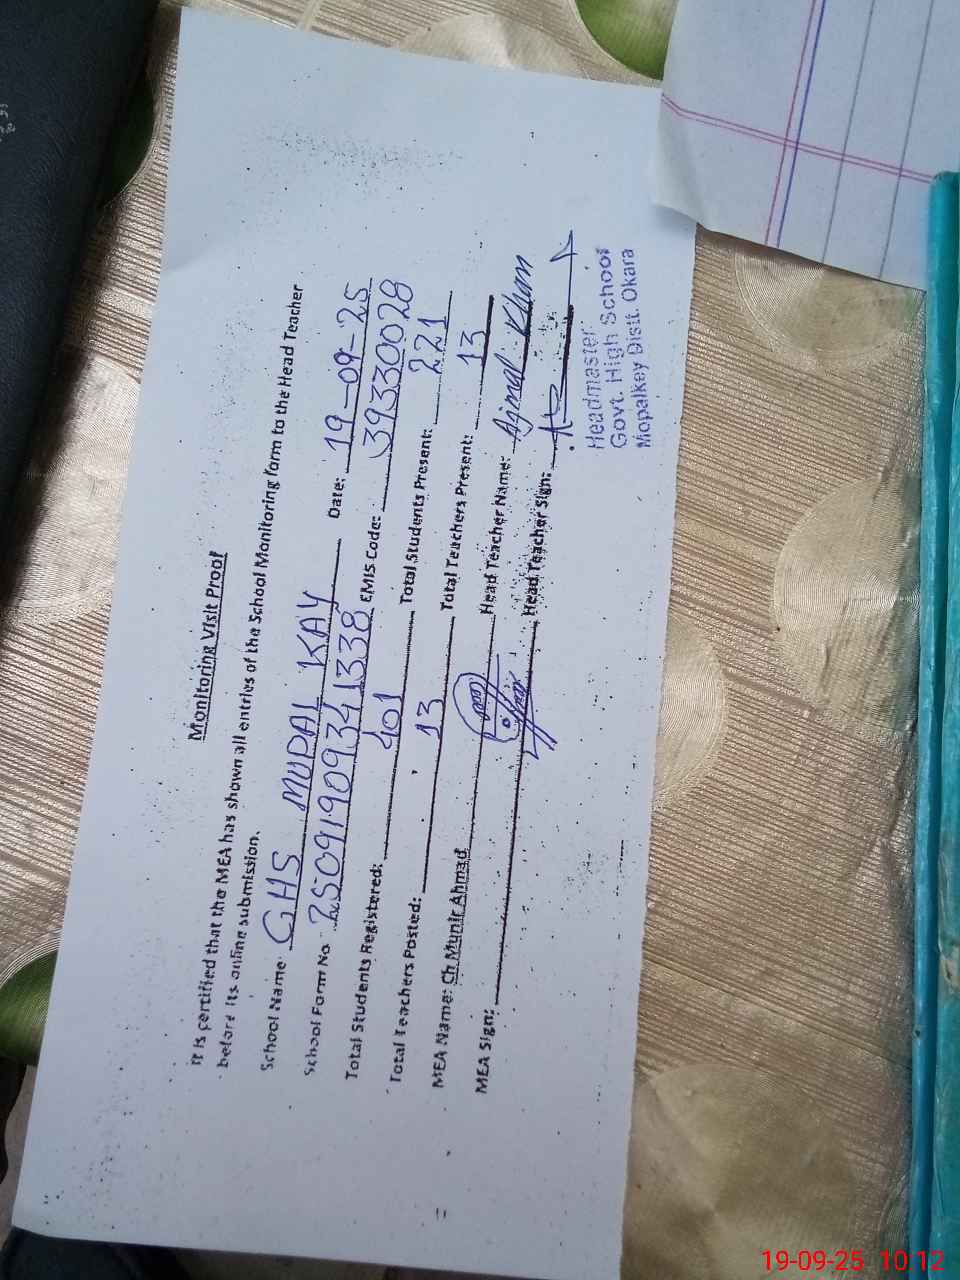 Monitoring Visit Proof
It is certified that the MEA has shown all entries of the School Monitoring form to the Head Teacher
before its online submission.
School Name: GHS MUPAL KAY Date: 19-09-25
School Form No 25091909341338 EMIS Code: 39330028
Total Students Registered: 401 Total Students Present: 221
Total Teachers Posted: 13 Total Teachers Present: 13
MEA Name: Ch Munir Ahmad Head Teacher Name: Ajmal Khan
MEA Sign: Head Teacher Sign:
Headmaster
Govt. High School
Mopalkey Distt. Okara
19-09-25 10:12